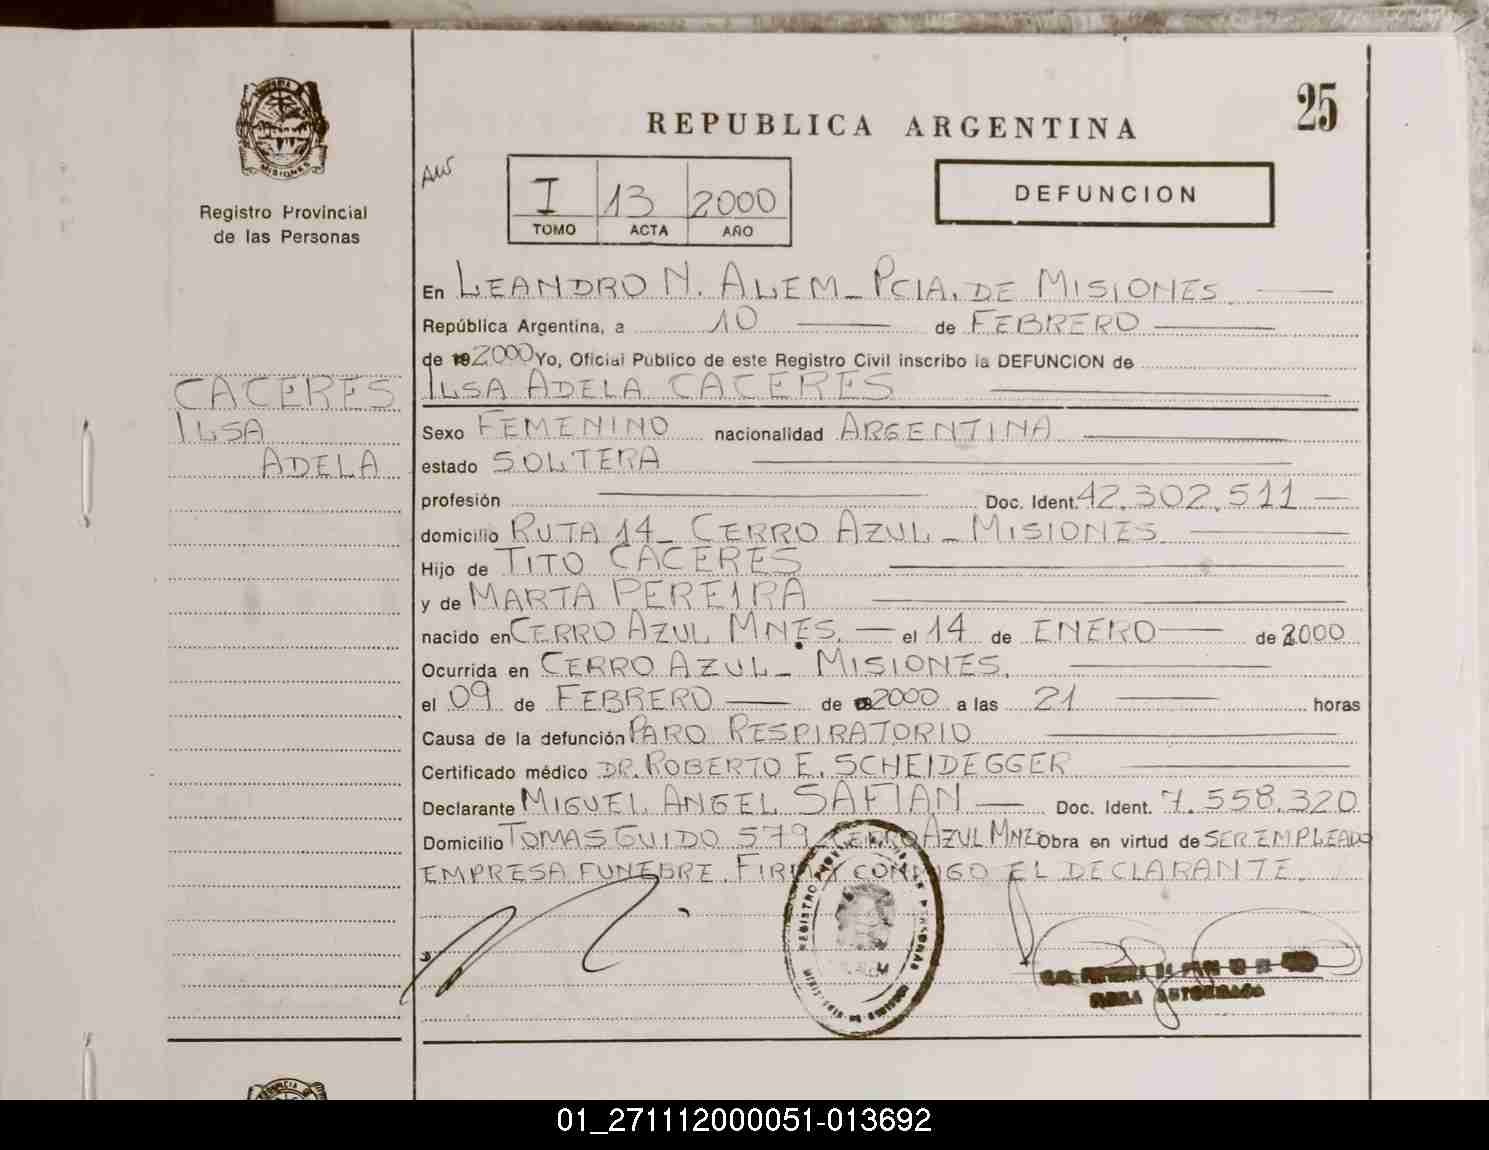 25
REPUBLICA ARGENTINA
MISIONES
Registro Provincial
de las Personas
I 13 2000
TOMO ACTA AÑO
DEFUNCION
En LEANDRO N. ALEM - PCIA. DE MISIONES.
República Argentina, a 10 de FEBRERO
de 2000 Yo, Oficial Publico de este Registro Civil inscribo la DEFUNCION de
ILSA ADELA CACERES
CACERES
ILSA
ADELA
Sexo FEMENINO nacionalidad ARGENTINA
estado SOLTERA
profesión Doc. Ident. 42.302.511
domicilio RUTA 14 - CERRO AZUL - MISIONES
Hijo de TITO CACERES
y de MARTA PEREIRA
nacido en CERRO AZUL MNES. el 14 de ENERO de 2000
Ocurrida en CERRO AZUL - MISIONES.
el 09 de FEBRERO de 2000 a las 21 horas
Causa de la defunción PARO RESPIRATORIO
Certificado médico DR. ROBERTO E. SCHEIDEGGER
Declarante MIGUEL ANGEL SAFIAN Doc. Ident. 7.558.320
Domicilio TOMAS GUIDO 579 CERRO AZUL MNES Obra en virtud de SER EMPLEADO
EMPRESA FUNEBRE. FIRMA CONMIGO EL DECLARANTE.
01_271112000051-013692